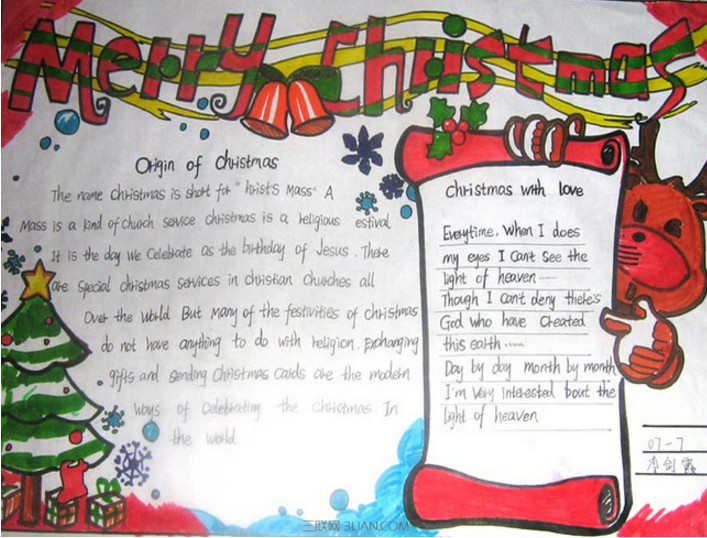 Merry Christmas
Origin of Christmas
The name Christmas is short for "hrist's Mass" A
Mass is a kind of church service christmas is a religious estival
It is the day we celebrate as the birthday of Jesus. There
are special christmas services in christian churches all
Over the world But many of the festivities of christmas
do not have anything to do with religion. Exchanging
gifts and sending Christmas cards are the modern
ways of celebrating the christmas In
the world
Christmas with love
Everytime, when I does
my eyes I can't see the
light of heaven
Though I can't deny there's
God who have created
this earth
Day by day month by month
I'm very interested bout the
light of heaven
07-7
李剑露
三联网 3LIAN.COM